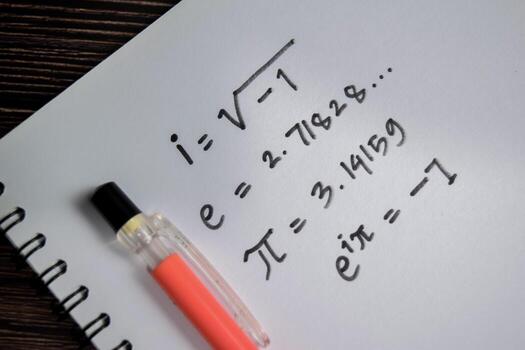 i = √-1
e = 2.71828...
π = 3.14159
e^iπ = -1